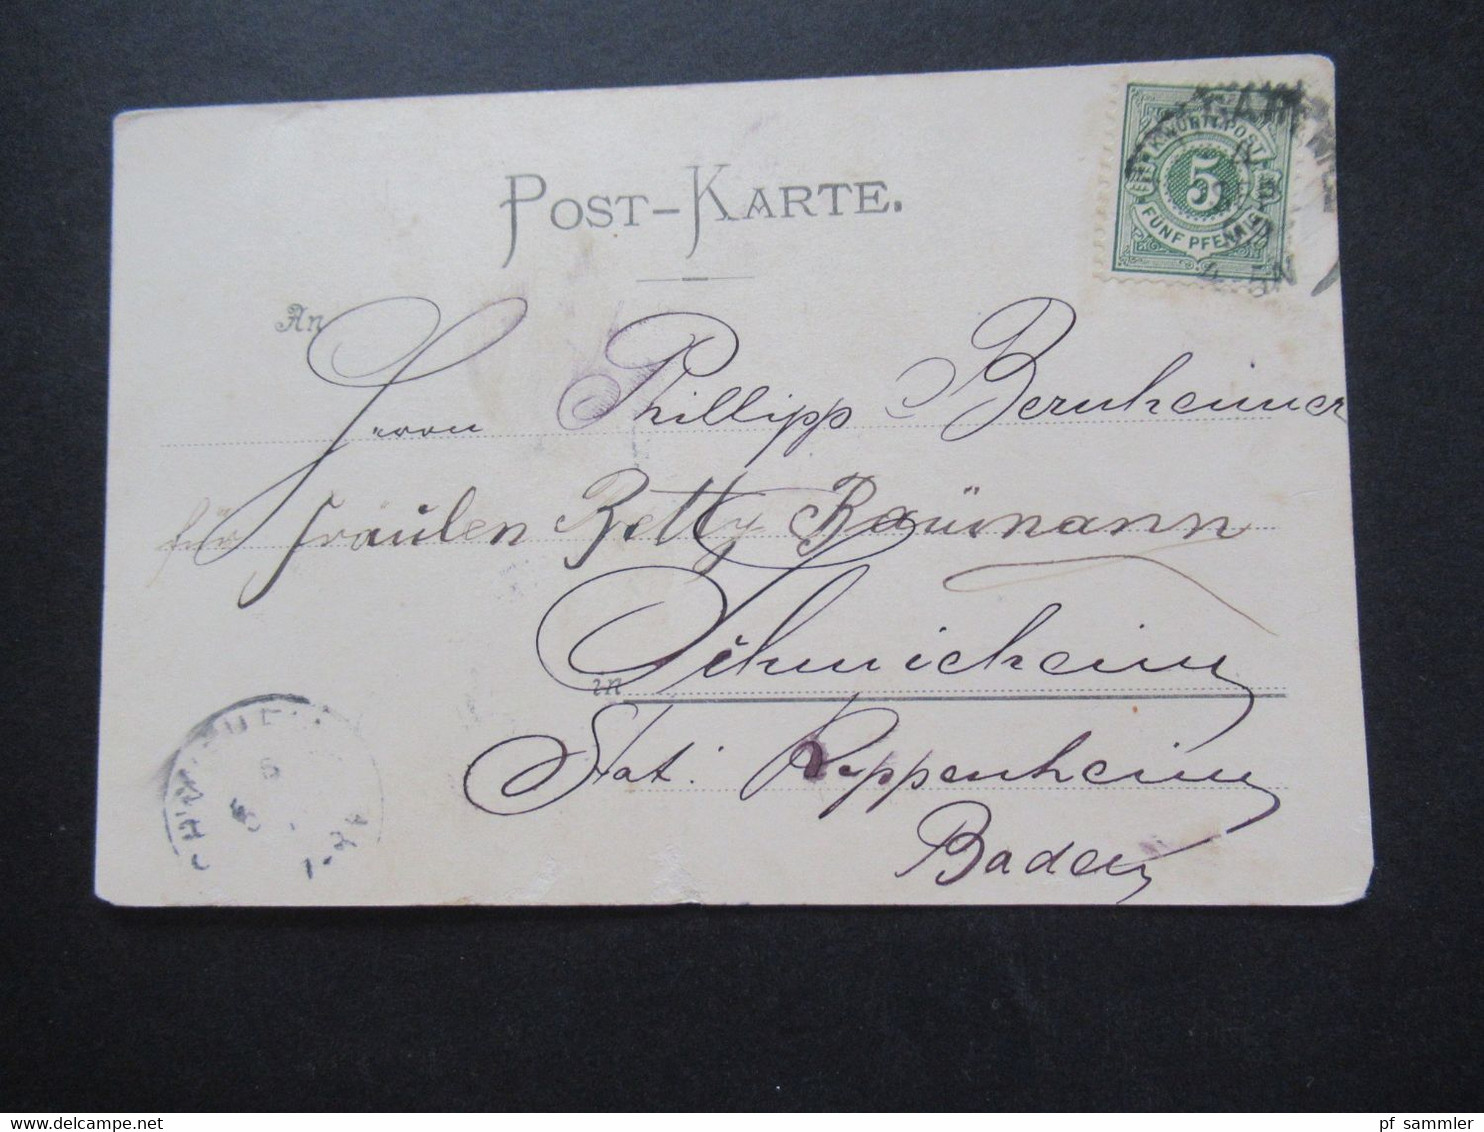 POST-KARTE.
K. WÜRTT. POST
5
FÜNF PFENNIG
An
Herrn Phillipp Bernheimer
für Fräulen Betty Baümann
in Schmieheim
Stat: Kippenheim
Baden
pf_sammler